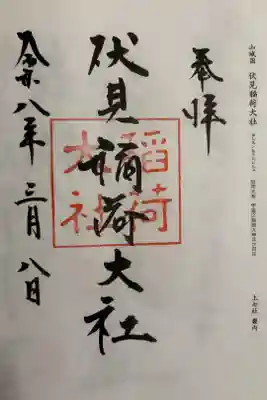 山城国 伏見稲荷大社
上七社 畿内
奉拝
伏見稲荷大社
稲荷
大社
令和八年 三月 八日